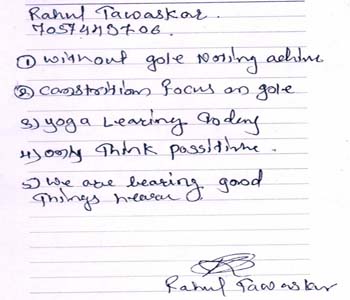 Rahul Tawaskar.
7057449706.
① without gole Noting achive
② Constrition focus on gole
3) yoga Learing Today
4) only Think possitive.
5) we are hearing good
Things hear
Rahul Tawaskar